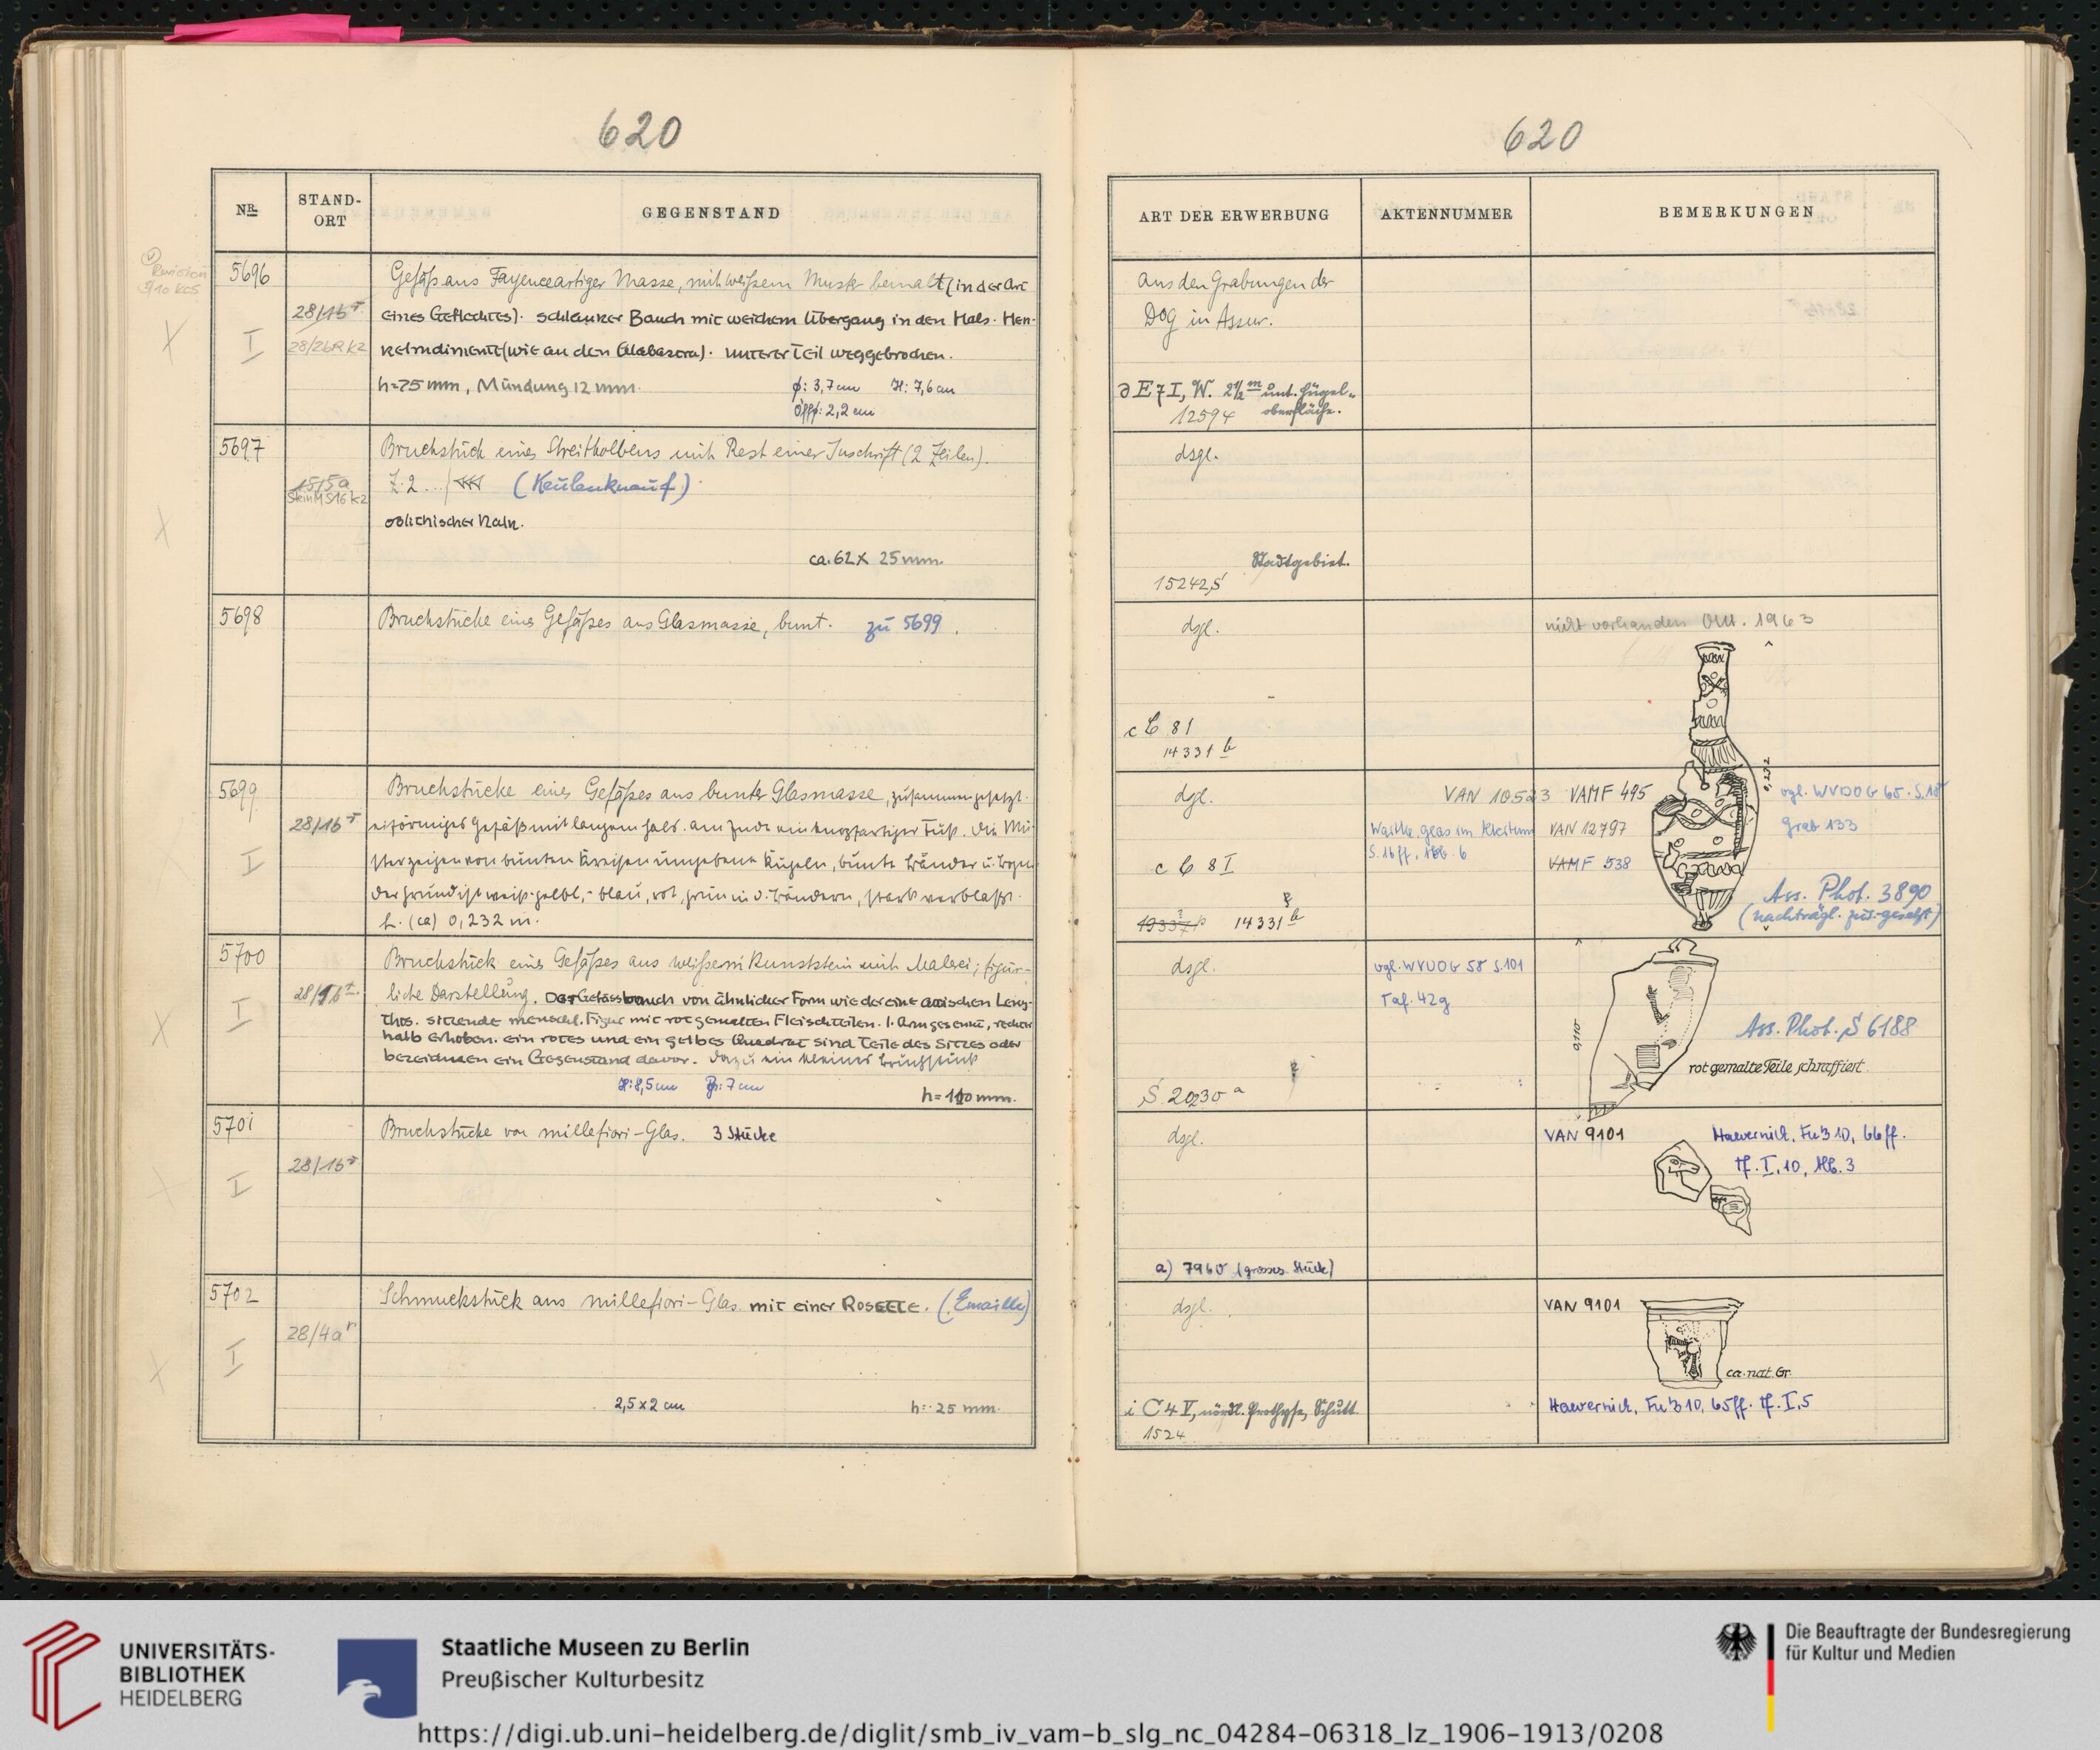 620
NR.
STAND-
ORT
GEGENSTAND
Revision
5696
Gefäß aus Fayenceartiger Masse, mit weißem Muster bemalt (in der Art
28/16
eines Geflechtes). schlanker Bauch mit weichem Übergang in den Hals. Hen-
I
28/26 R K2
kelrudimente (wie an den Alabastra). unterer Teil weggebrochen.
h=75 mm, Mündung 12 mm.
φ: 3,7 cm H: 7,6 cm
Öffφ: 2,2 cm
5697
Bruchstück eines Streitkolbens mit Rest einer Inschrift (2 Zeilen).
15/5a
Stein M S16 K2
Z. 2 ... (Keulenknauf)
oolithischer Kalk.
ca. 62 x 25 mm.
5698
Bruchstücke eines Gefäßes aus Glasmasse, bunt. zu 5699.
5699
Bruchstücke eines Gefäßes aus bunter Glasmasse, zusammengesetzt.
28/16
eiförmiges Gefäß mit langem Hals. am Ende ein knopfartiger Fuß. Die Mu-
I
ster zeigen von bunten Kreisen umgebene Kugeln, bunte Bänder u. Bogen
der Grund ist weiß-gelbl. - blau, rot, grün in d. Bändern, stark verblaßt.
L. (ca) 0,232 m.
5700
Bruchstück eines Gefäßes aus weißem Kunststein mit Malerei; figür-
28/16
liche Darstellung. Der Gefässbauch von ähnlicher Form wie der eine attischen Leky-
I
thos. sitzende menschl. Figur mit rot gemalten Fleischteilen. l. Arm gesenkt, rechter
halb erhoben. ein rotes und ein gelbes Quadrat sind Teile des Sitzes oder
bezeichnen ein Gegenstand davor. dazu ein kleines Bruchstück
H: 8,5 cm Br: 7 cm
h = 110 mm.
5701
Bruchstücke von millefiori-Glas. 3 Stücke
28/16
I
5702
Schmuckstück aus millefiori-Glas mit einer Rosette. (Emaille)
28/4a
I
2,5 x 2 cm
h = 25 mm.
620
ART DER ERWERBUNG
AKTENNUMMER
BEMERKUNGEN
Aus den Grabungen der
DOG in Assur.
∂ E 7 I, W. 2 1/2 m unt. Hügel-
12594 oberfläche.
dsgl.
Stadtgebiet.
15242 S
dsgl.
nicht vorhanden 1963
c C 8 I
14331 b
dsgl.
VAN 10523
VAMF 495
vgl. WVDOG 65. S. 18
Wartke, Glas im Altertum
VAN 12797
Grab 133
S. 16 ff, Abb. 6
VAMF 538
c C 8 I
0,232
14331 b
Ass. Phot. 3890
(nachträgl. zus.-gesetzt)
dsgl.
vgl. WVDOG 58 S. 101
Taf. 42g
0,110
Ass. Phot. S 6188
rot gemalte Teile schraffiert
S 20230 a
dsgl.
VAN 9101
Haevernick, FuB 10, 66 ff.
Tf. I, 10, Abb. 3
a) 7960 (grosses Stück)
dsgl.
VAN 9101
ca. nat. Gr.
i C 4 V, nördl. Prothyse, Schutt
1524
Haevernick, FuB 10, 65 ff. Tf. I, 5
UNIVERSITÄTS-
BIBLIOTHEK
HEIDELBERG
Staatliche Museen zu Berlin
Preußischer Kulturbesitz
Die Beauftragte der Bundesregierung
für Kultur und Medien
https://digi.ub.uni-heidelberg.de/diglit/smb_iv_vam-b_slg_nc_04284-06318_lz_1906-1913/0208